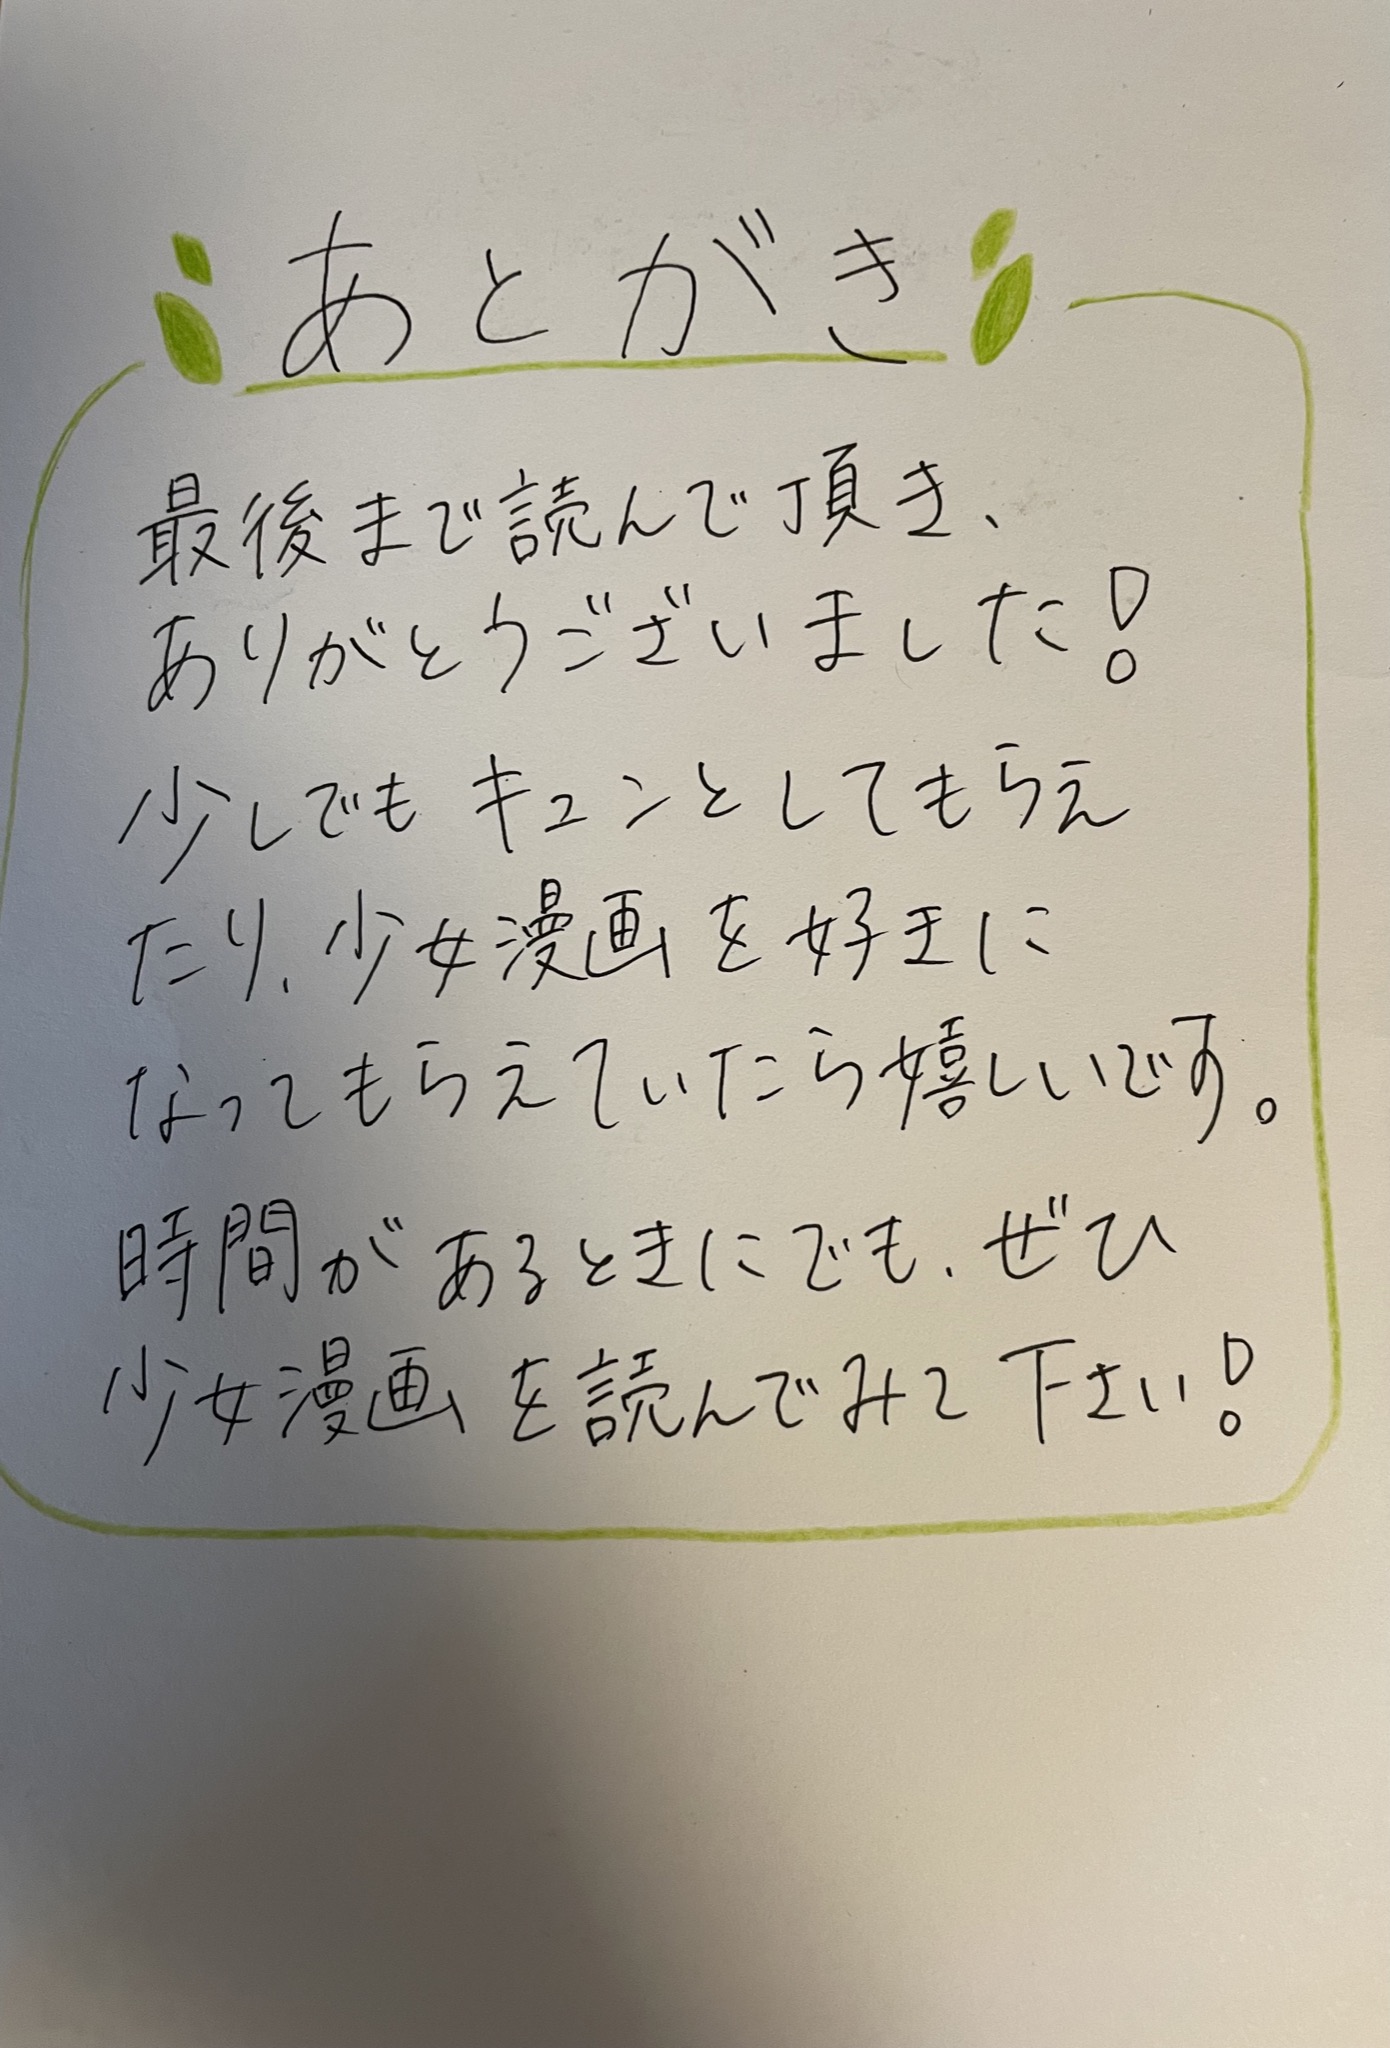 あとがき
最後まで読んで頂き、
ありがとうございました!
少しでもキュンとしてもらえ
たり、少女漫画を好きに
なってもらえていたら嬉しいです。
時間があるときにでも、ぜひ
少女漫画を読んでみて下さい!